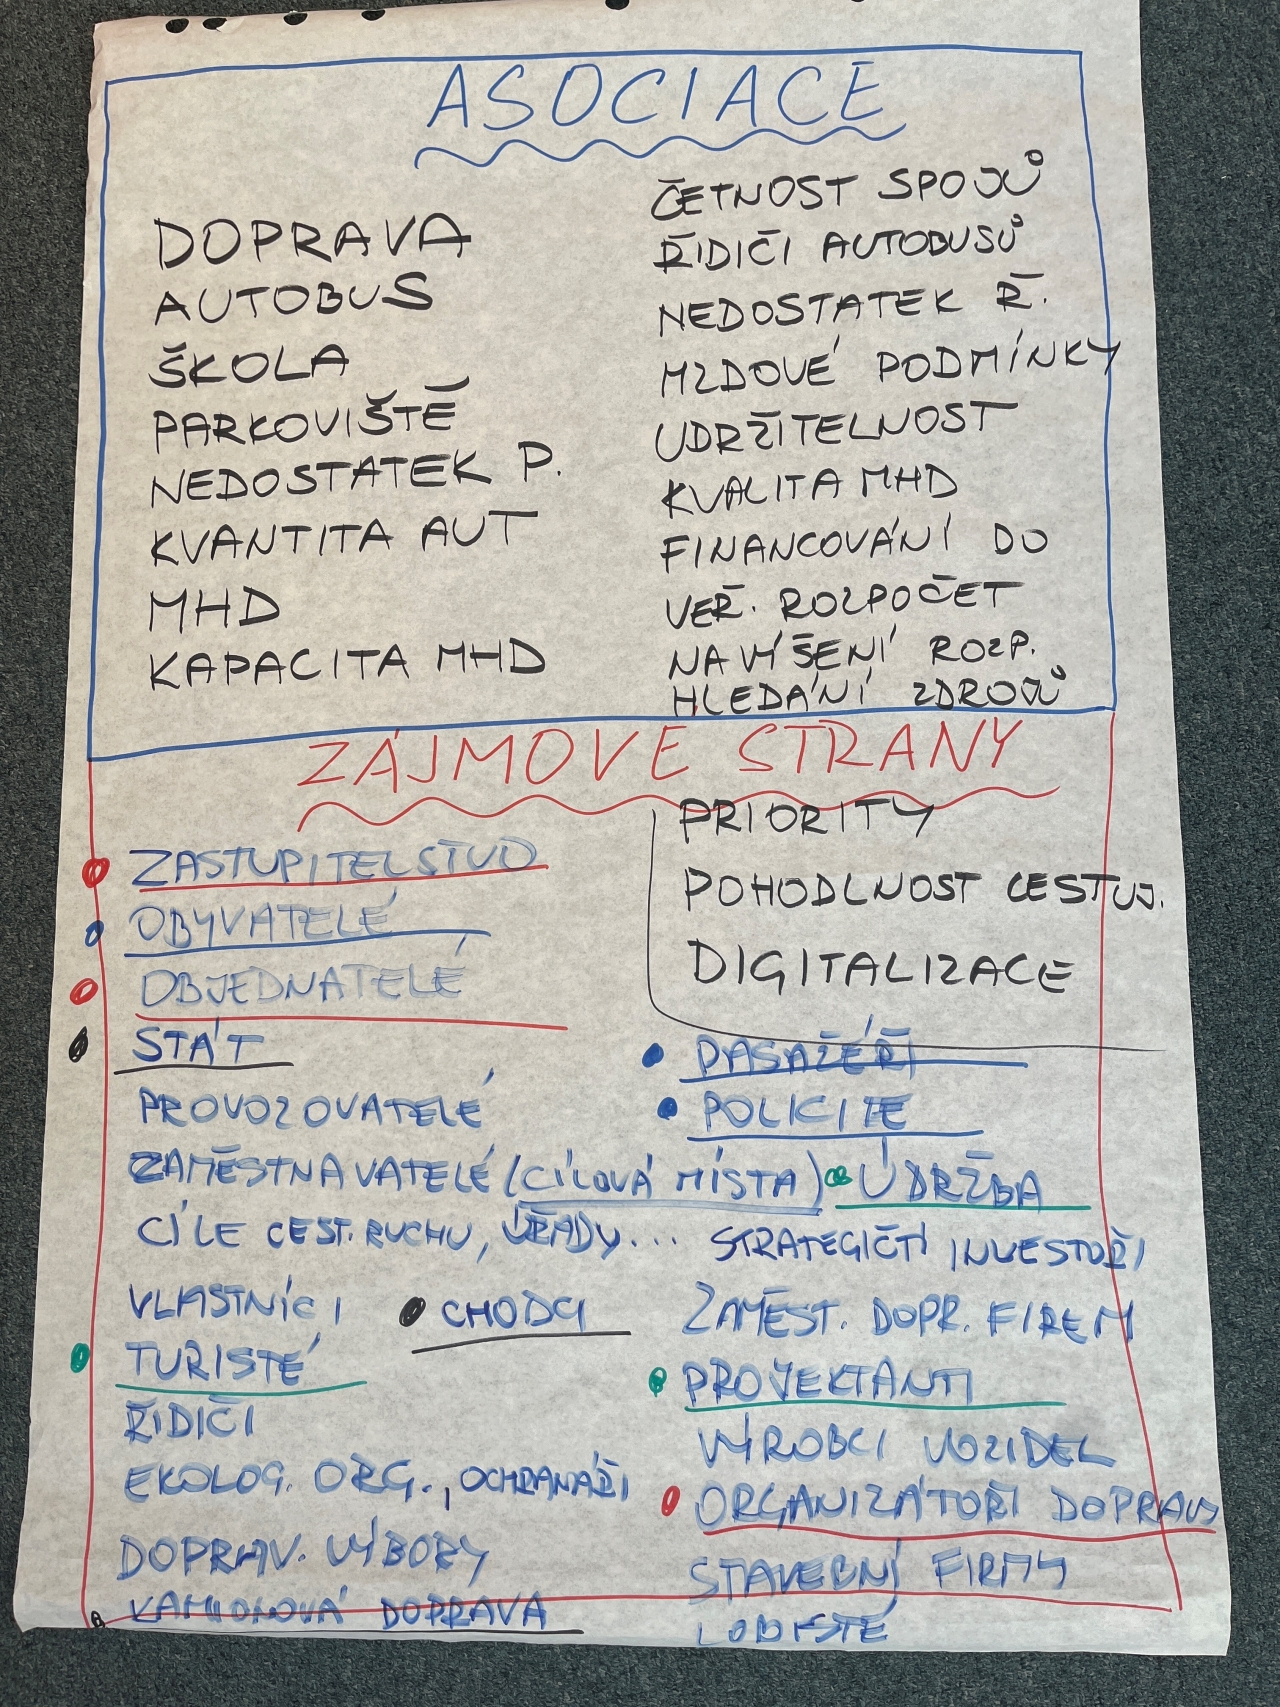 ASOCIACE
DOPRAVA
AUTOBUS
ŠKOLA
PARKOVIŠTĚ
NEDOSTATEK P.
KVANTITA AUT
MHD
KAPACITA MHD
ČETNOST SPOJŮ
ŘIDIČI AUTOBUSŮ
NEDOSTATEK Ř.
MZDOVÉ PODMÍNKY
UDRŽITELNOST
KVALITA MHD
FINANCOVÁNÍ DO
VEŘ. ROZPOČET
NAVÍŠENÍ ROZP.
HLEDÁNÍ ZDROJŮ
ZÁJMOVÉ STRANY
PRIORITY
POHODLNOST CESTUJ.
DIGITALIZACE
ZASTUPITELSTVO
OBYVATELÉ
OBJEDNATELÉ
STÁT
PROVOZOVATELÉ
ZAMĚSTNAVATELÉ (CÍLOVÁ MÍSTA)
CÍLE CEST. RUCHU, ÚŘADY...
VLASTNÍCI
CHODCI
TURISTÉ
ŘIDIČI
EKOLOG. ORG., OCHRANÁŘI
DOPRAV. VÝBORY
KAMIONOVÁ DOPRAVA
PASAŽÉŘI
POLICIE
ÚDRŽBA
STRATEGIČTÍ INVESTOŘI
ZAMĚST. DOPR. FIREM
PROJEKTANTI
VÝROBCI VOZIDEL
ORGANIZÁTOŘI DOPRAVY
STAVEBNÍ FIRMY
LOBISTÉ